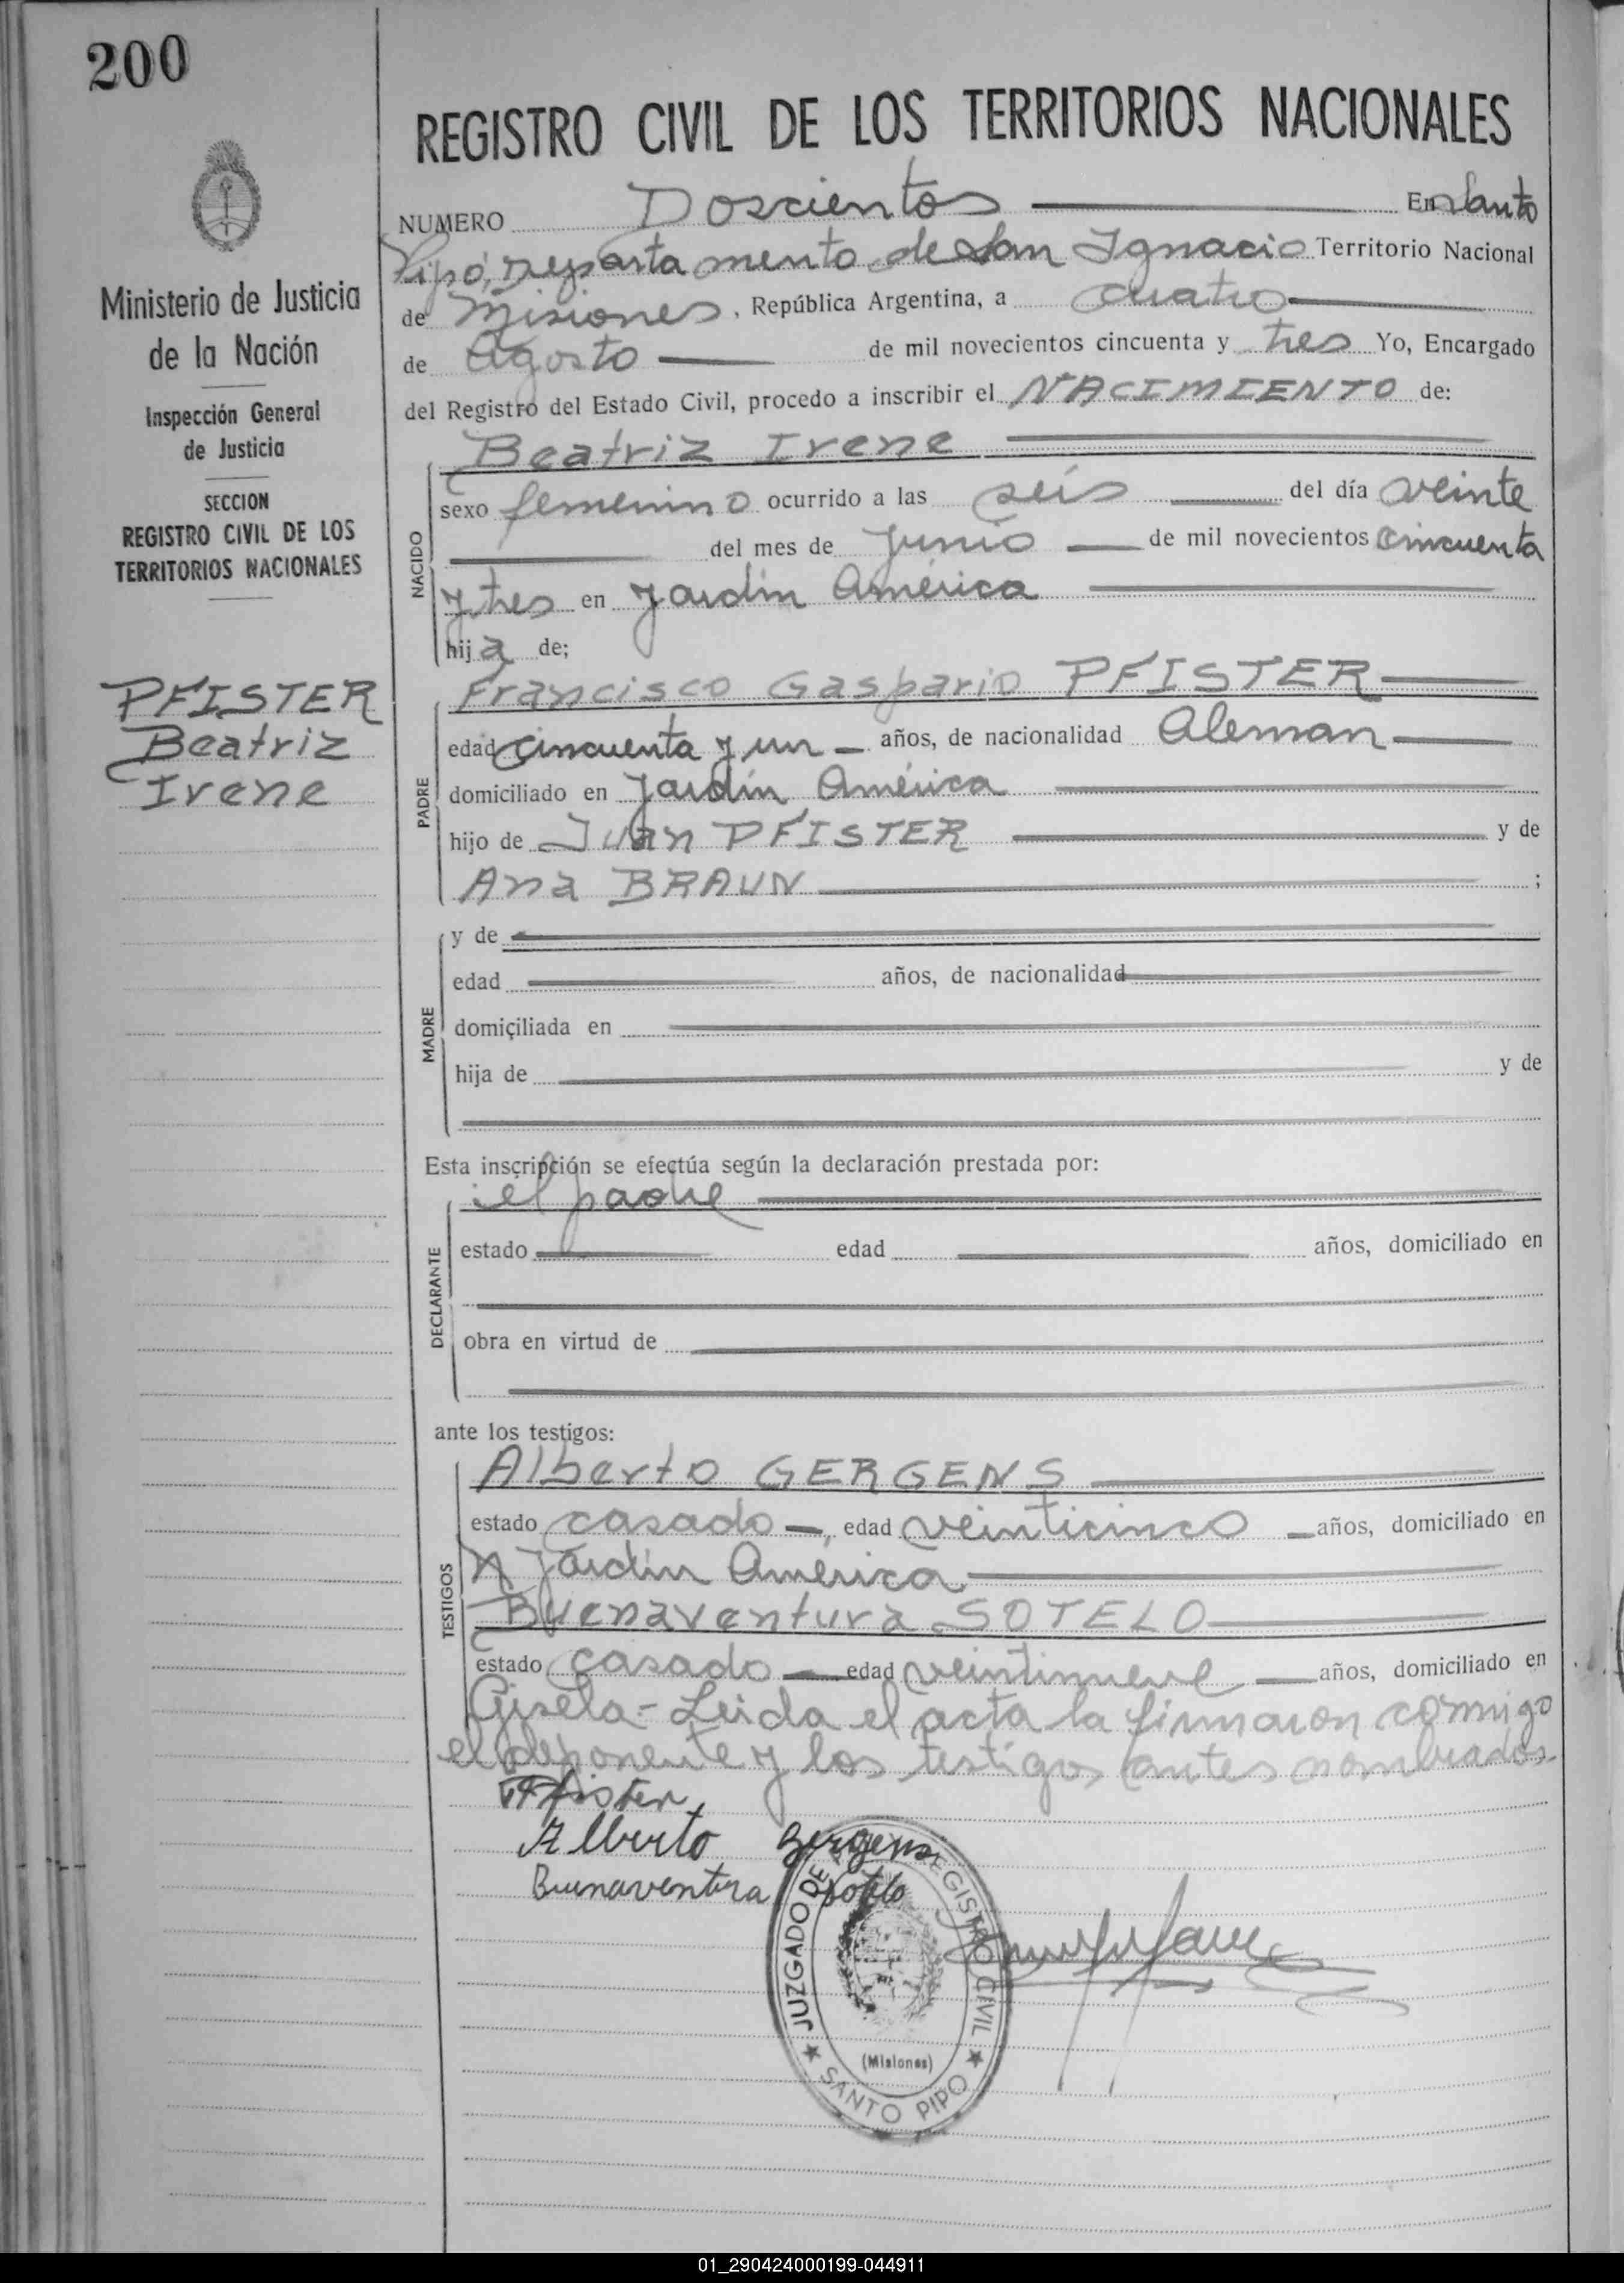 200
REGISTRO CIVIL DE LOS TERRITORIOS NACIONALES
NUMERO Doscientos En Santo
Pipó, Departamento de San Ignacio Territorio Nacional
de Misiones, República Argentina, a cuatro
de Agosto de mil novecientos cincuenta y tres Yo, Encargado
del Registro del Estado Civil, procedo a inscribir el NACIMIENTO de:
Ministerio de Justicia
de la Nación
Inspección General
de Justicia
SECCION
REGISTRO CIVIL DE LOS
TERRITORIOS NACIONALES
PFISTER
Beatriz
Irene
NACIDO
Beatriz Irene
sexo femenino ocurrido a las seis del día veinte
del mes de Junio de mil novecientos cincuenta
y tres en Jardín América
hija de;
PADRE
Francisco Gaspario PFISTER
edad cincuenta y un años, de nacionalidad Aleman
domiciliado en Jardín América
hijo de Juan PFISTER y de
Ana BRAUN ;
MADRE
y de
edad años, de nacionalidad
domiciliada en
hija de y de
Esta inscripción se efectúa según la declaración prestada por:
DECLARANTE
el padre
estado edad años, domiciliado en
obra en virtud de
ante los testigos:
TESTIGOS
Alberto GERGENS
estado casado, edad veinticinco años, domiciliado en
Jardín América
Buenaventura SOTELO
estado casado edad veintinueve años, domiciliado en
Gisela.- Leida el acta la firmaron conmigo
el deponente y los testigos antes nombrados.
Pfister
Alberto Gergens
Buenaventura Sotelo
JUZGADO DE REGISTRO CIVIL
(Misiones)
SANTO PIPO
01_290424000199-044911